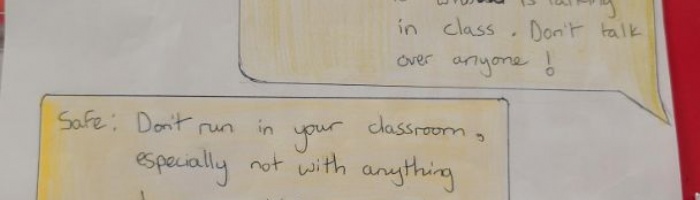 is talking
in class. Don't talk
over anyone!
Safe: Don't run in your classroom,
especially not with anything